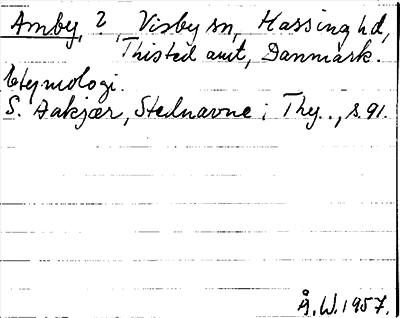 Amby, ?, Visby sn, Hassing hd,
Thisted amt, Danmark.
Etymologi.
S. Aakjær, Stednavne i Thy.., s. 91.
Å.W. 1957.